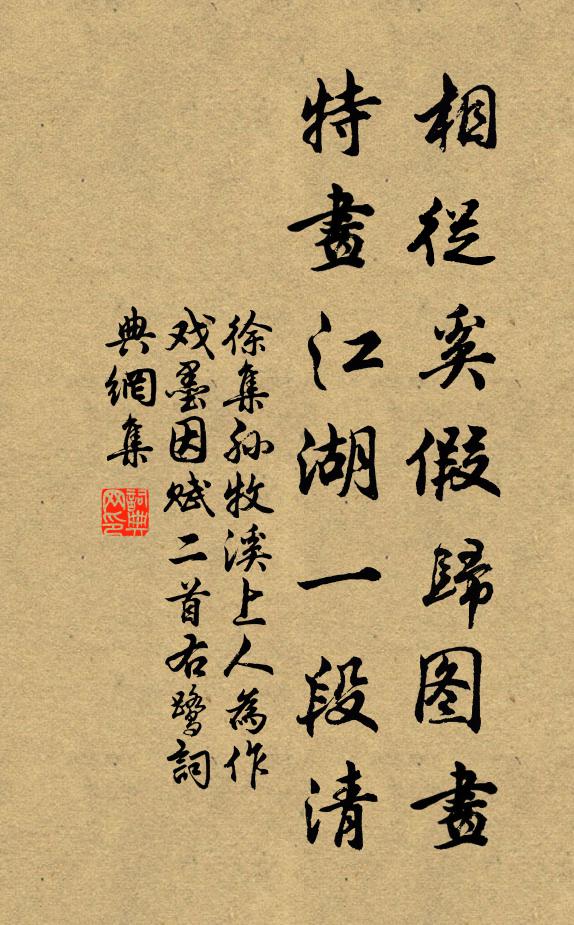 相從奚假歸图畫
特畫江湖一段清
徐集孙牧溪上人為作
戏墨因赋二首右鹭詞
典網集
詞典
网印